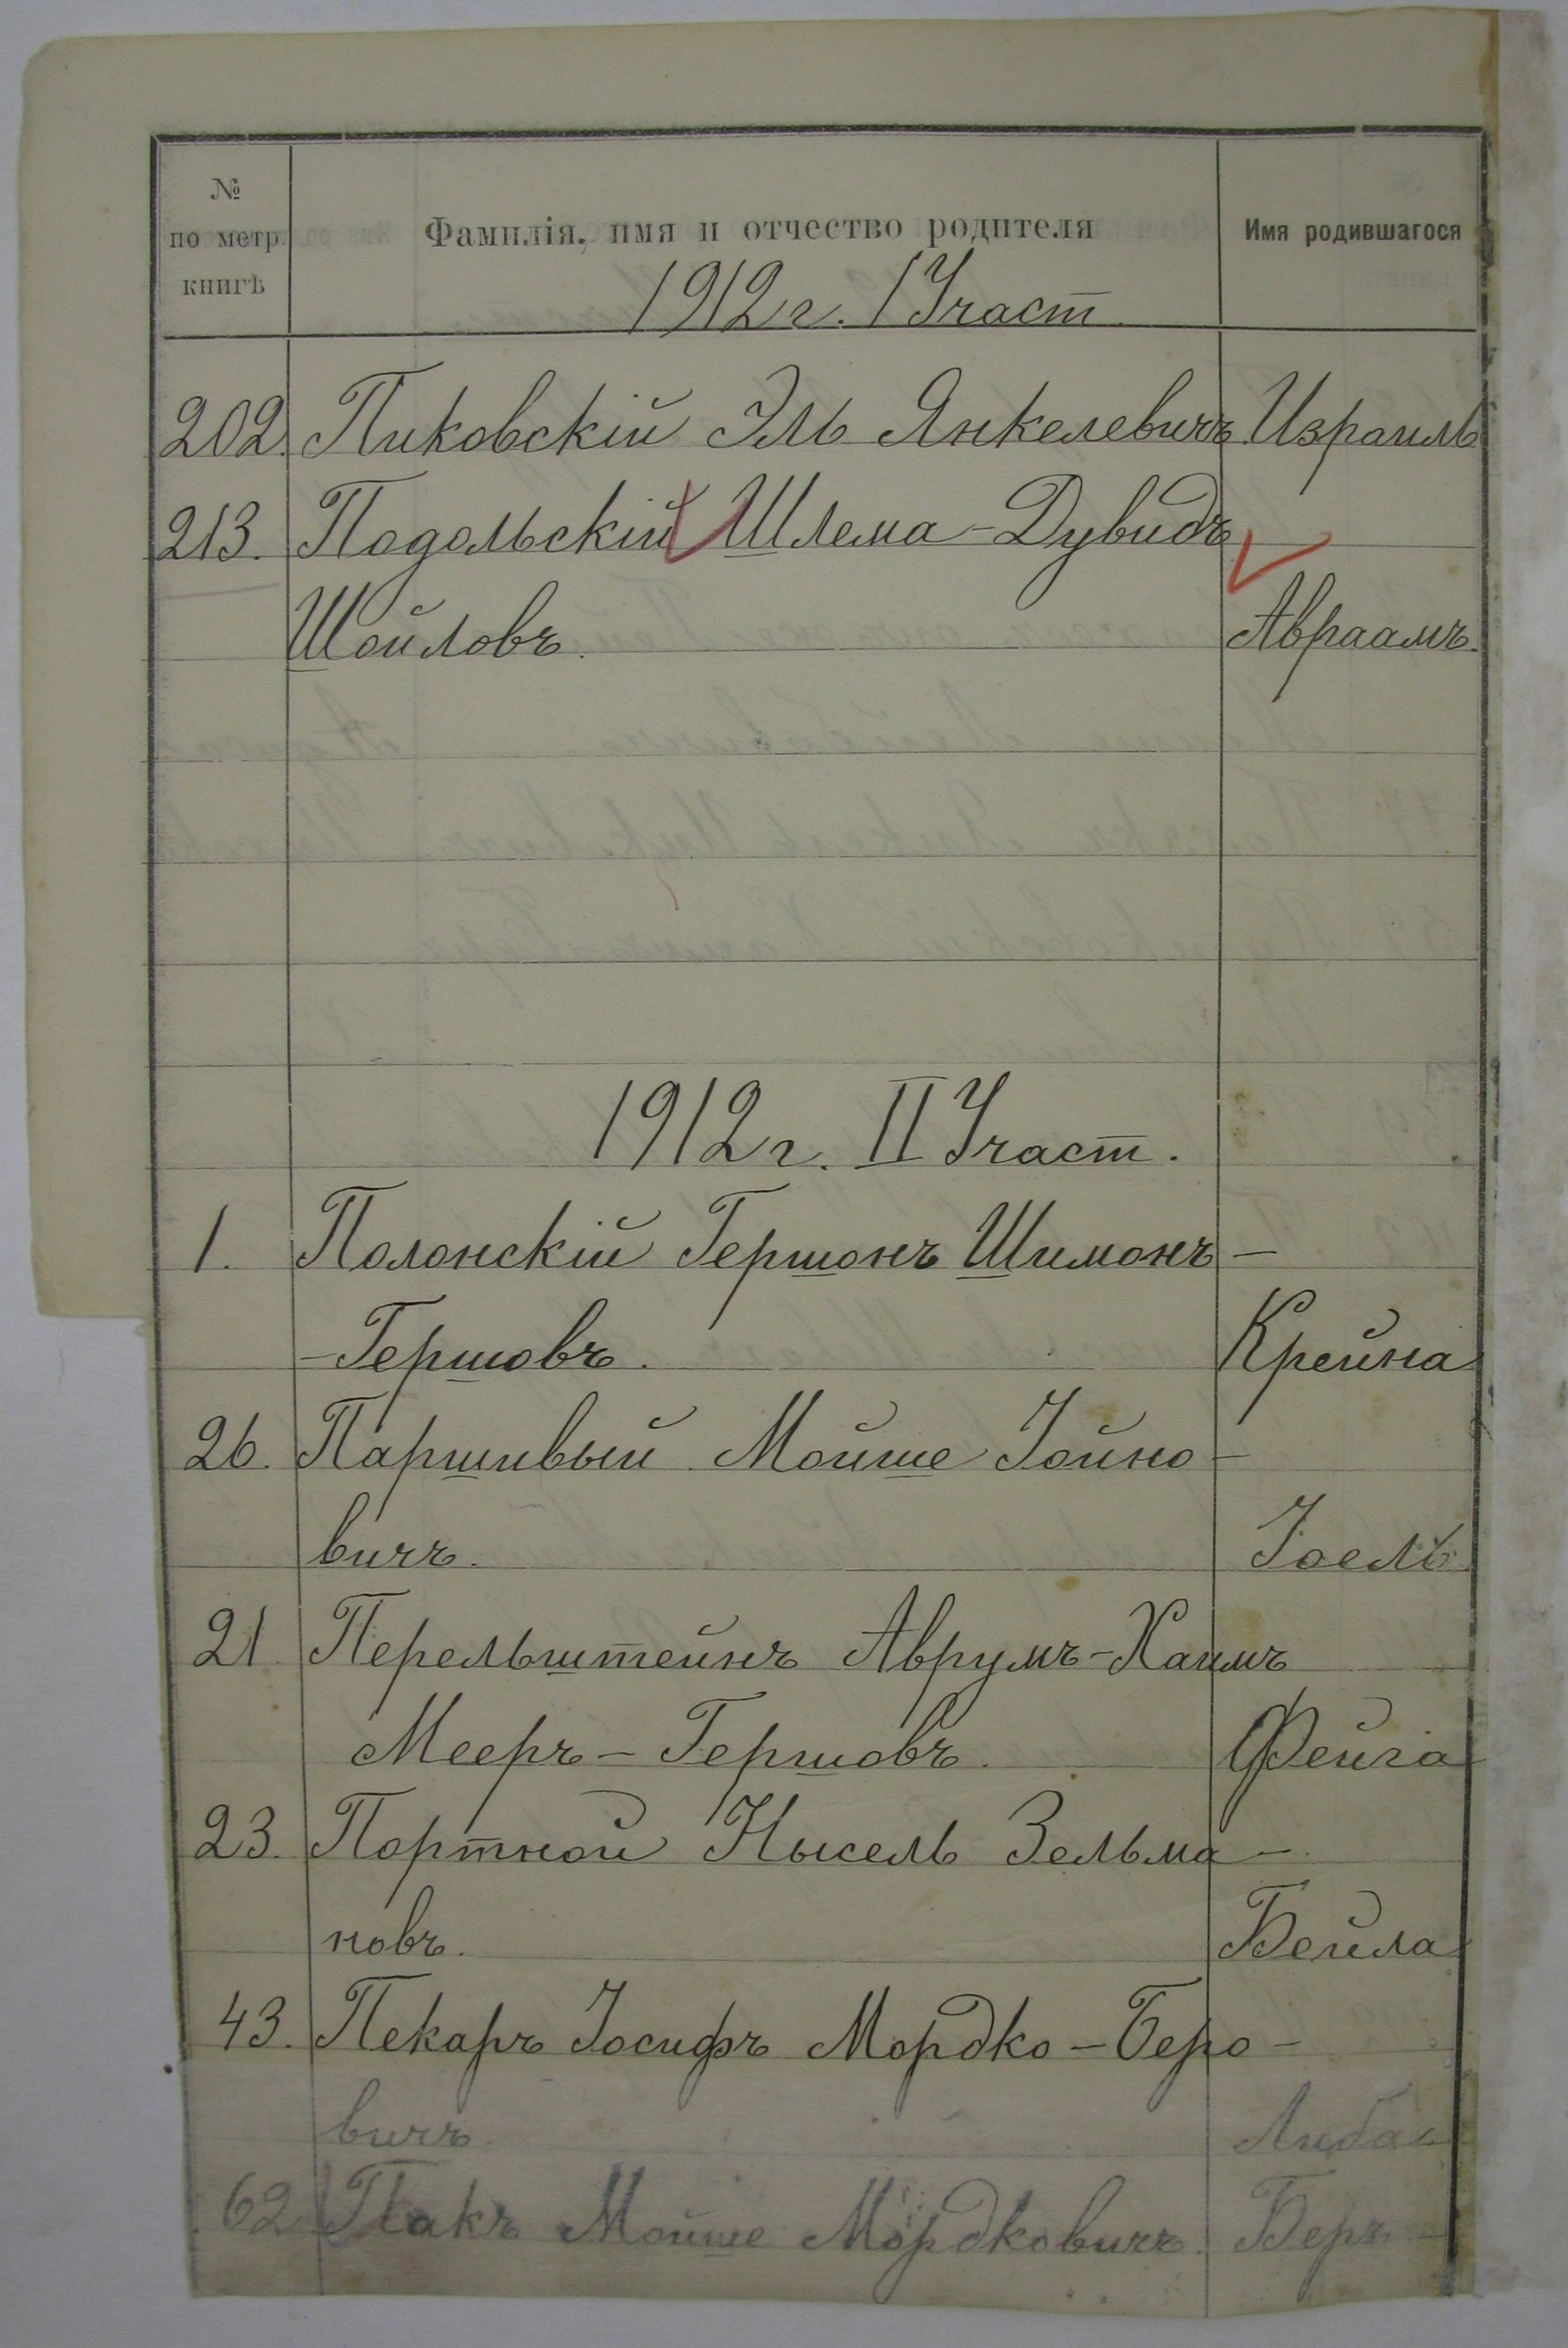 №
по метр.
книгѣ
Фамилія, имя и отчество родителя
Имя родившагося
1912 г. I Участ.
202. Пиковскій Эль Янкелевичъ Израиль
213. Подольскій Шлема-Дувидъ
Шойловъ. Авраамъ.
1912 г. II Участ.
1. Полонскій Гершонъ Шимонъ-
-Гершовъ. Крейна
26. Паршивый Мойше Іойно-
вичъ. Іоель
21. Перельштейнъ Аврумъ-Хаимъ
Мееръ-Гершовъ. Фейга
23. Портной Нысель Зельма-
новъ. Бейла
43. Пекаръ Іосифъ Мордко-Беро-
вичъ. Либа
62 Пакъ Мойше Мордковичъ. Беръ